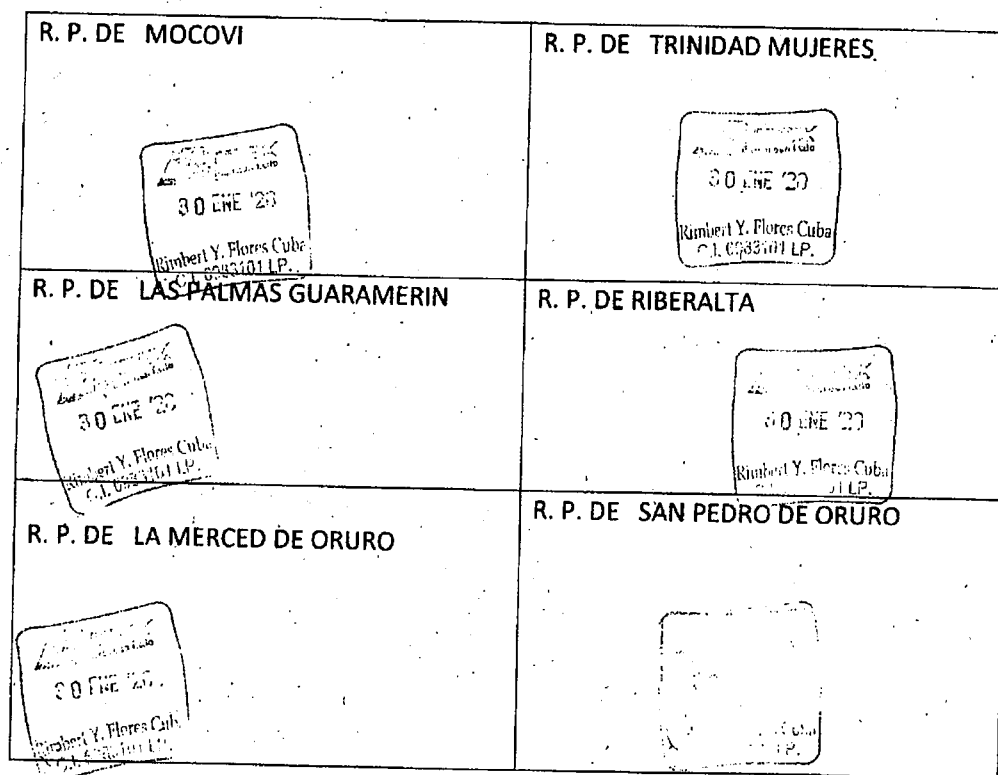 R. P. DE MOCOVI
30 ENE '20
Rimbert Y. Flores Cuba
C.I. LP.
R. P. DE TRINIDAD MUJERES
30 ENE '20
Rimbert Y. Flores Cuba
C.I. LP.
R. P. DE LAS PALMAS GUARAMERIN
30 ENE '20
Rimbert Y. Flores Cuba
C.I. LP.
R. P. DE RIBERALTA
30 ENE '20
Rimbert Y. Flores Cuba
LP.
R. P. DE LA MERCED DE ORURO
30 ENE '20
Rimbert Y. Flores Cuba
C.I.
R. P. DE SAN PEDRO DE ORURO